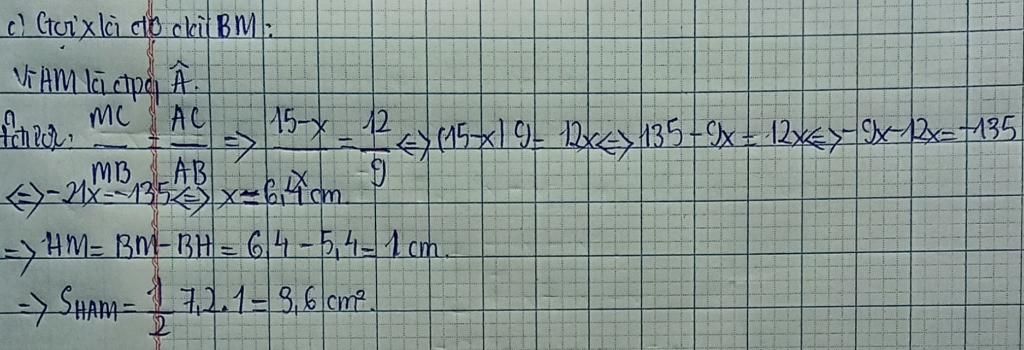 c) Gọi x là độ dài BM:
Vì AM là tpg Â.
MC/MB = AC/AB => 15-x/x = 12/9 <=> (15-x) 9 = 12x <=> 135 - 9x = 12x <=> -9x-12x = -135
<=> -21x = -135 <=> x = 6,4 cm
=> HM = BM - BH = 6,4 - 5,4 = 1 cm.
=> SHAM = 1/2 7,2 . 1 = 3,6 cm².